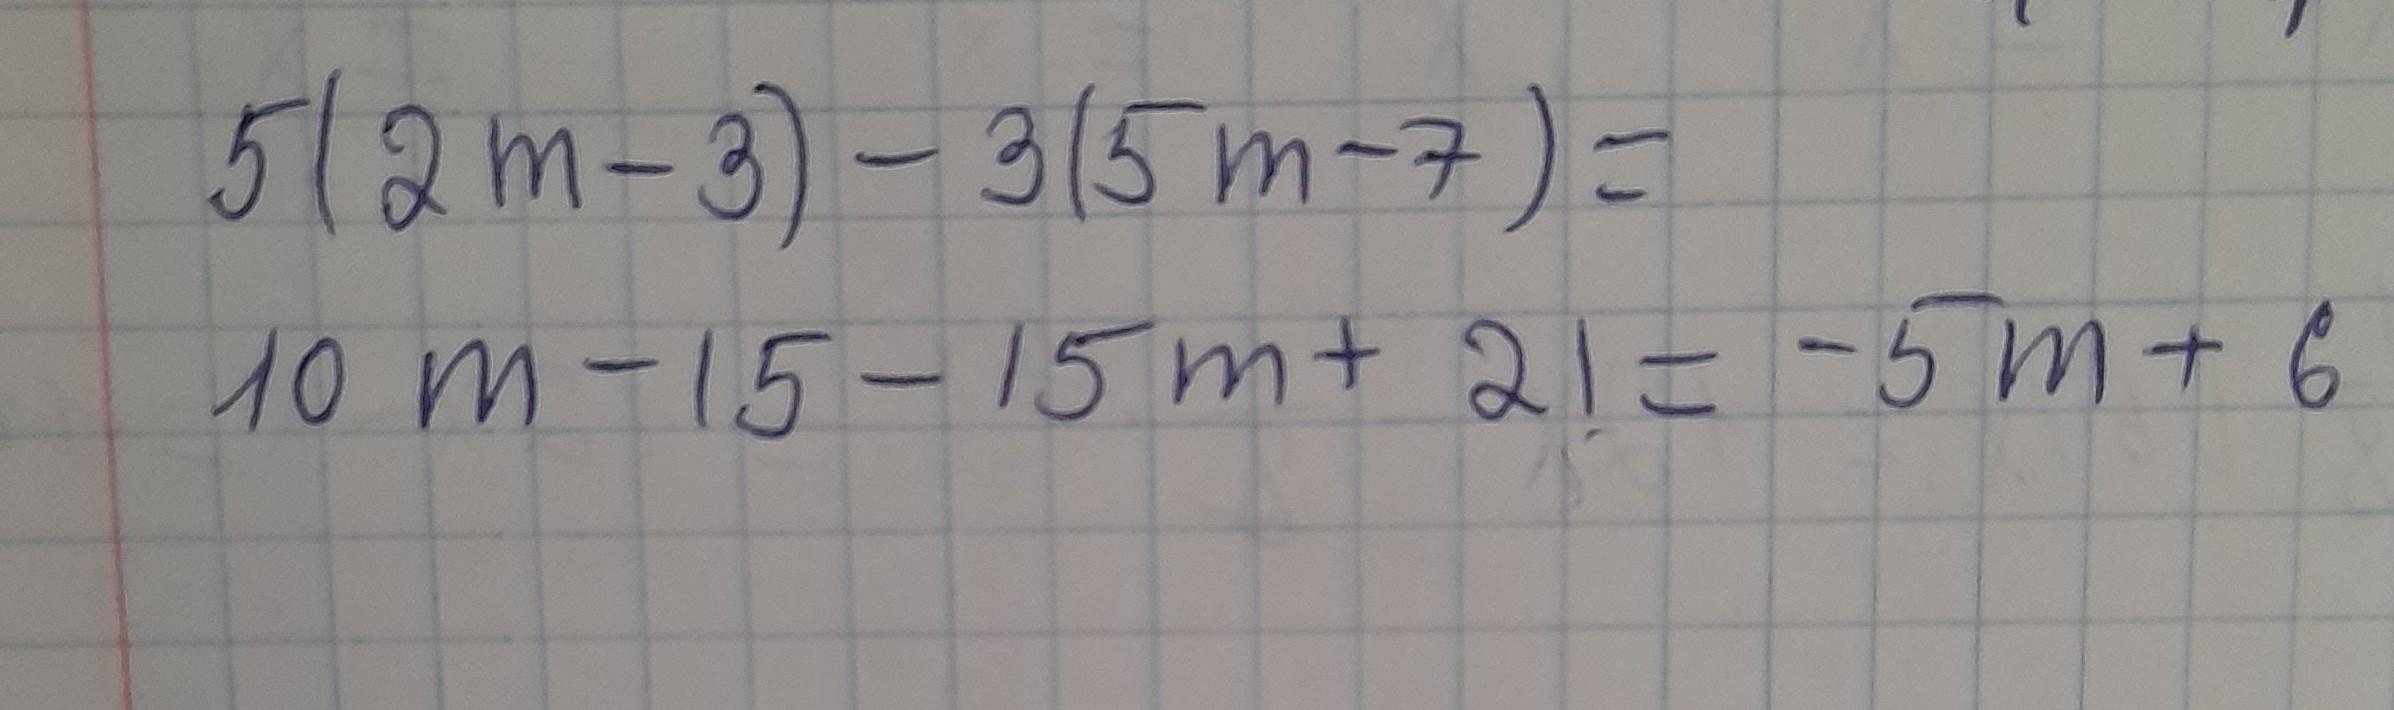 5(2m-3)-3(5m-7)=
10m-15-15m+21=-5m+6